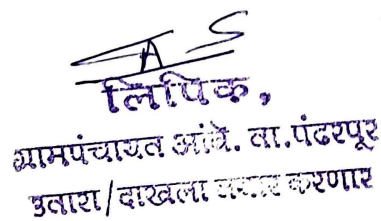 लिपिक,
ग्रामपंचायत आंबे. ता.पंढरपूर
उतारा/दाखला तयार करणार